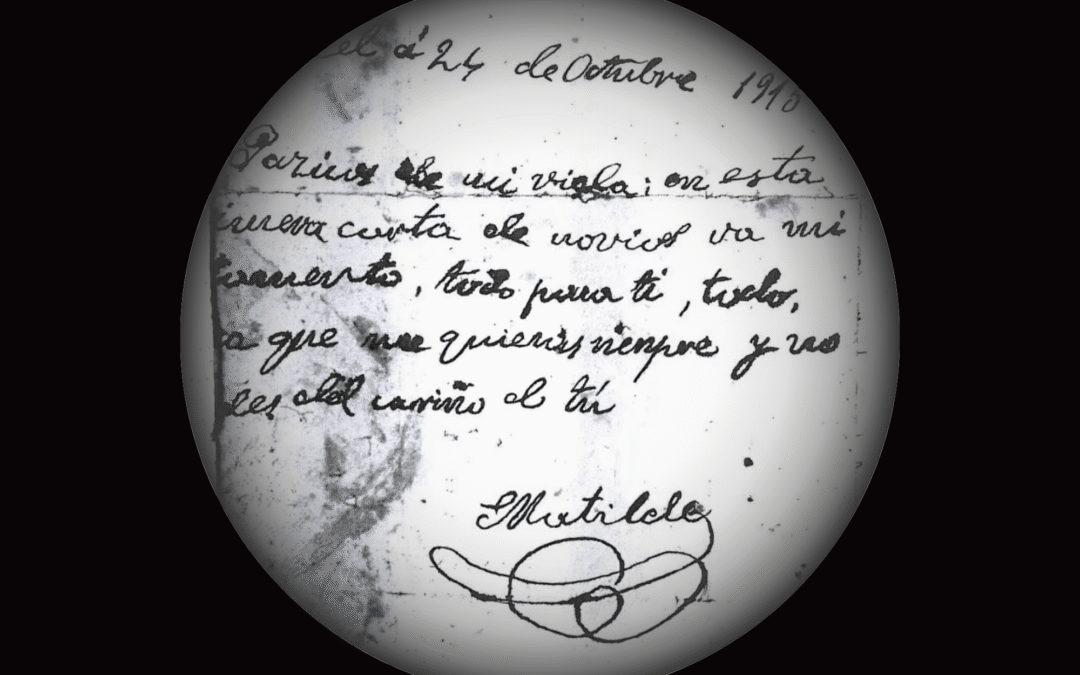 á 24 de Octubre 191
de mi vida: en esta
carta de novios va mi
, todo para ti, todo,
que me quieras siempre y no
del cariño el tú
Matilde